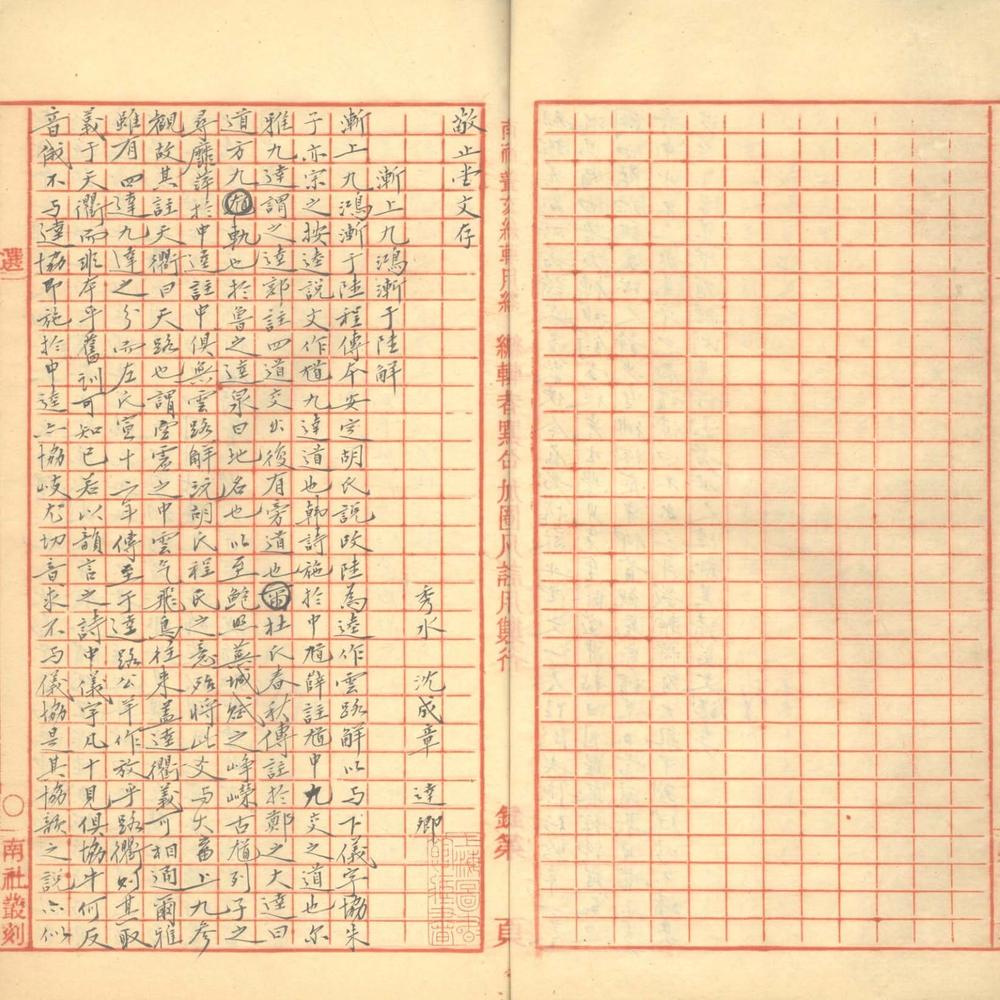 敬止堂文存
秀水　沈成章　逵卿
漸上九鴻漸于陸解
漸上九鴻漸于陸程傳本安定胡氏說改陸為逵作雲路解以与下儀字協朱
子亦宗之按逵說文作馗九達道也韓詩施於中馗薛註馗中九交之道也尔
雅九達謂之逵郭註四道交出復有旁道也爾杜氏春秋傳註於鄭之大逵曰
道方九馗軌也於魯之逵泉曰地名也以至鮑照蕪城賦之崢嶸古馗列子之
尋靡蓱於中逵註中俱無雲路解玩胡氏程氏之意殆將此爻与大畜上九參
觀故其註天衢曰天路也謂空雲之中雲气飛鳥往来蓋逵衢義可相通爾雅
雖有四達九達之分而左氏宣十二年傳至于逵路公羊作放乎路衢則其取
義于天衢而非本乎舊訓可知已若以韻言之詩中儀字凡十見俱協牛何反
音俄不与逵協即施於中逵亦協岐尤切音求不与儀協是其協歌之說亦似
選
〇
南社叢刻
編輯者點合加圈凡註用雙行
錄第　頁